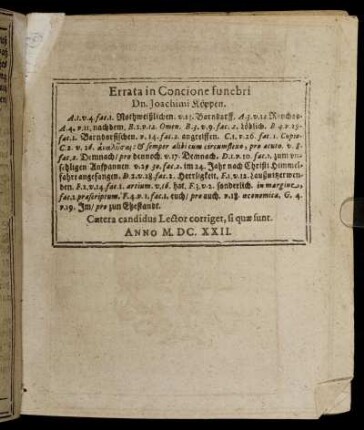 Errata in Concione funebri
Dn. Joachimi Köppen.
A.1.v.4. fac.1. Rothweißlichen. v.15. Barndorff. A.3.v.12.
A.4. v.11. nachdem. B.2.v.12. Omen. B.3. v.9. fac.2. löblich. B.4.v.15.
fac.2. Barndorffischen. v.14. fac.2. angreiffen. C.1.v.26. fac.1. Copie.
C.2. v. 26. & semper alibi cum circumflexo, pro acuto. v. 8.
fac.2. Demnach/ pro dennoch. v.17. Demnach. D.1.v.10. fac.2. zum
sehligen Auffpannen. v.29. 30. fac.2. im 34. Jahr nach Christi Himmel-
fahrt angefangen. E.2.v.18. fac.2. Herrligkeit. F.1.v.12. Laußnitzer wen-
den. F.1.v.14. fac.1. artium. v.16. hat. F.3.v.2. sonderlich. in margine,
fac.2. præscriptum. F.4.v.1. fac.1. euch/ pro auch. v.18. œconomica. G. 4.
v.19. Im/ pro zum Ehestande.
Cætera candidus Lector corriget, si quæ sunt.
ANNO M. DC. XXII.